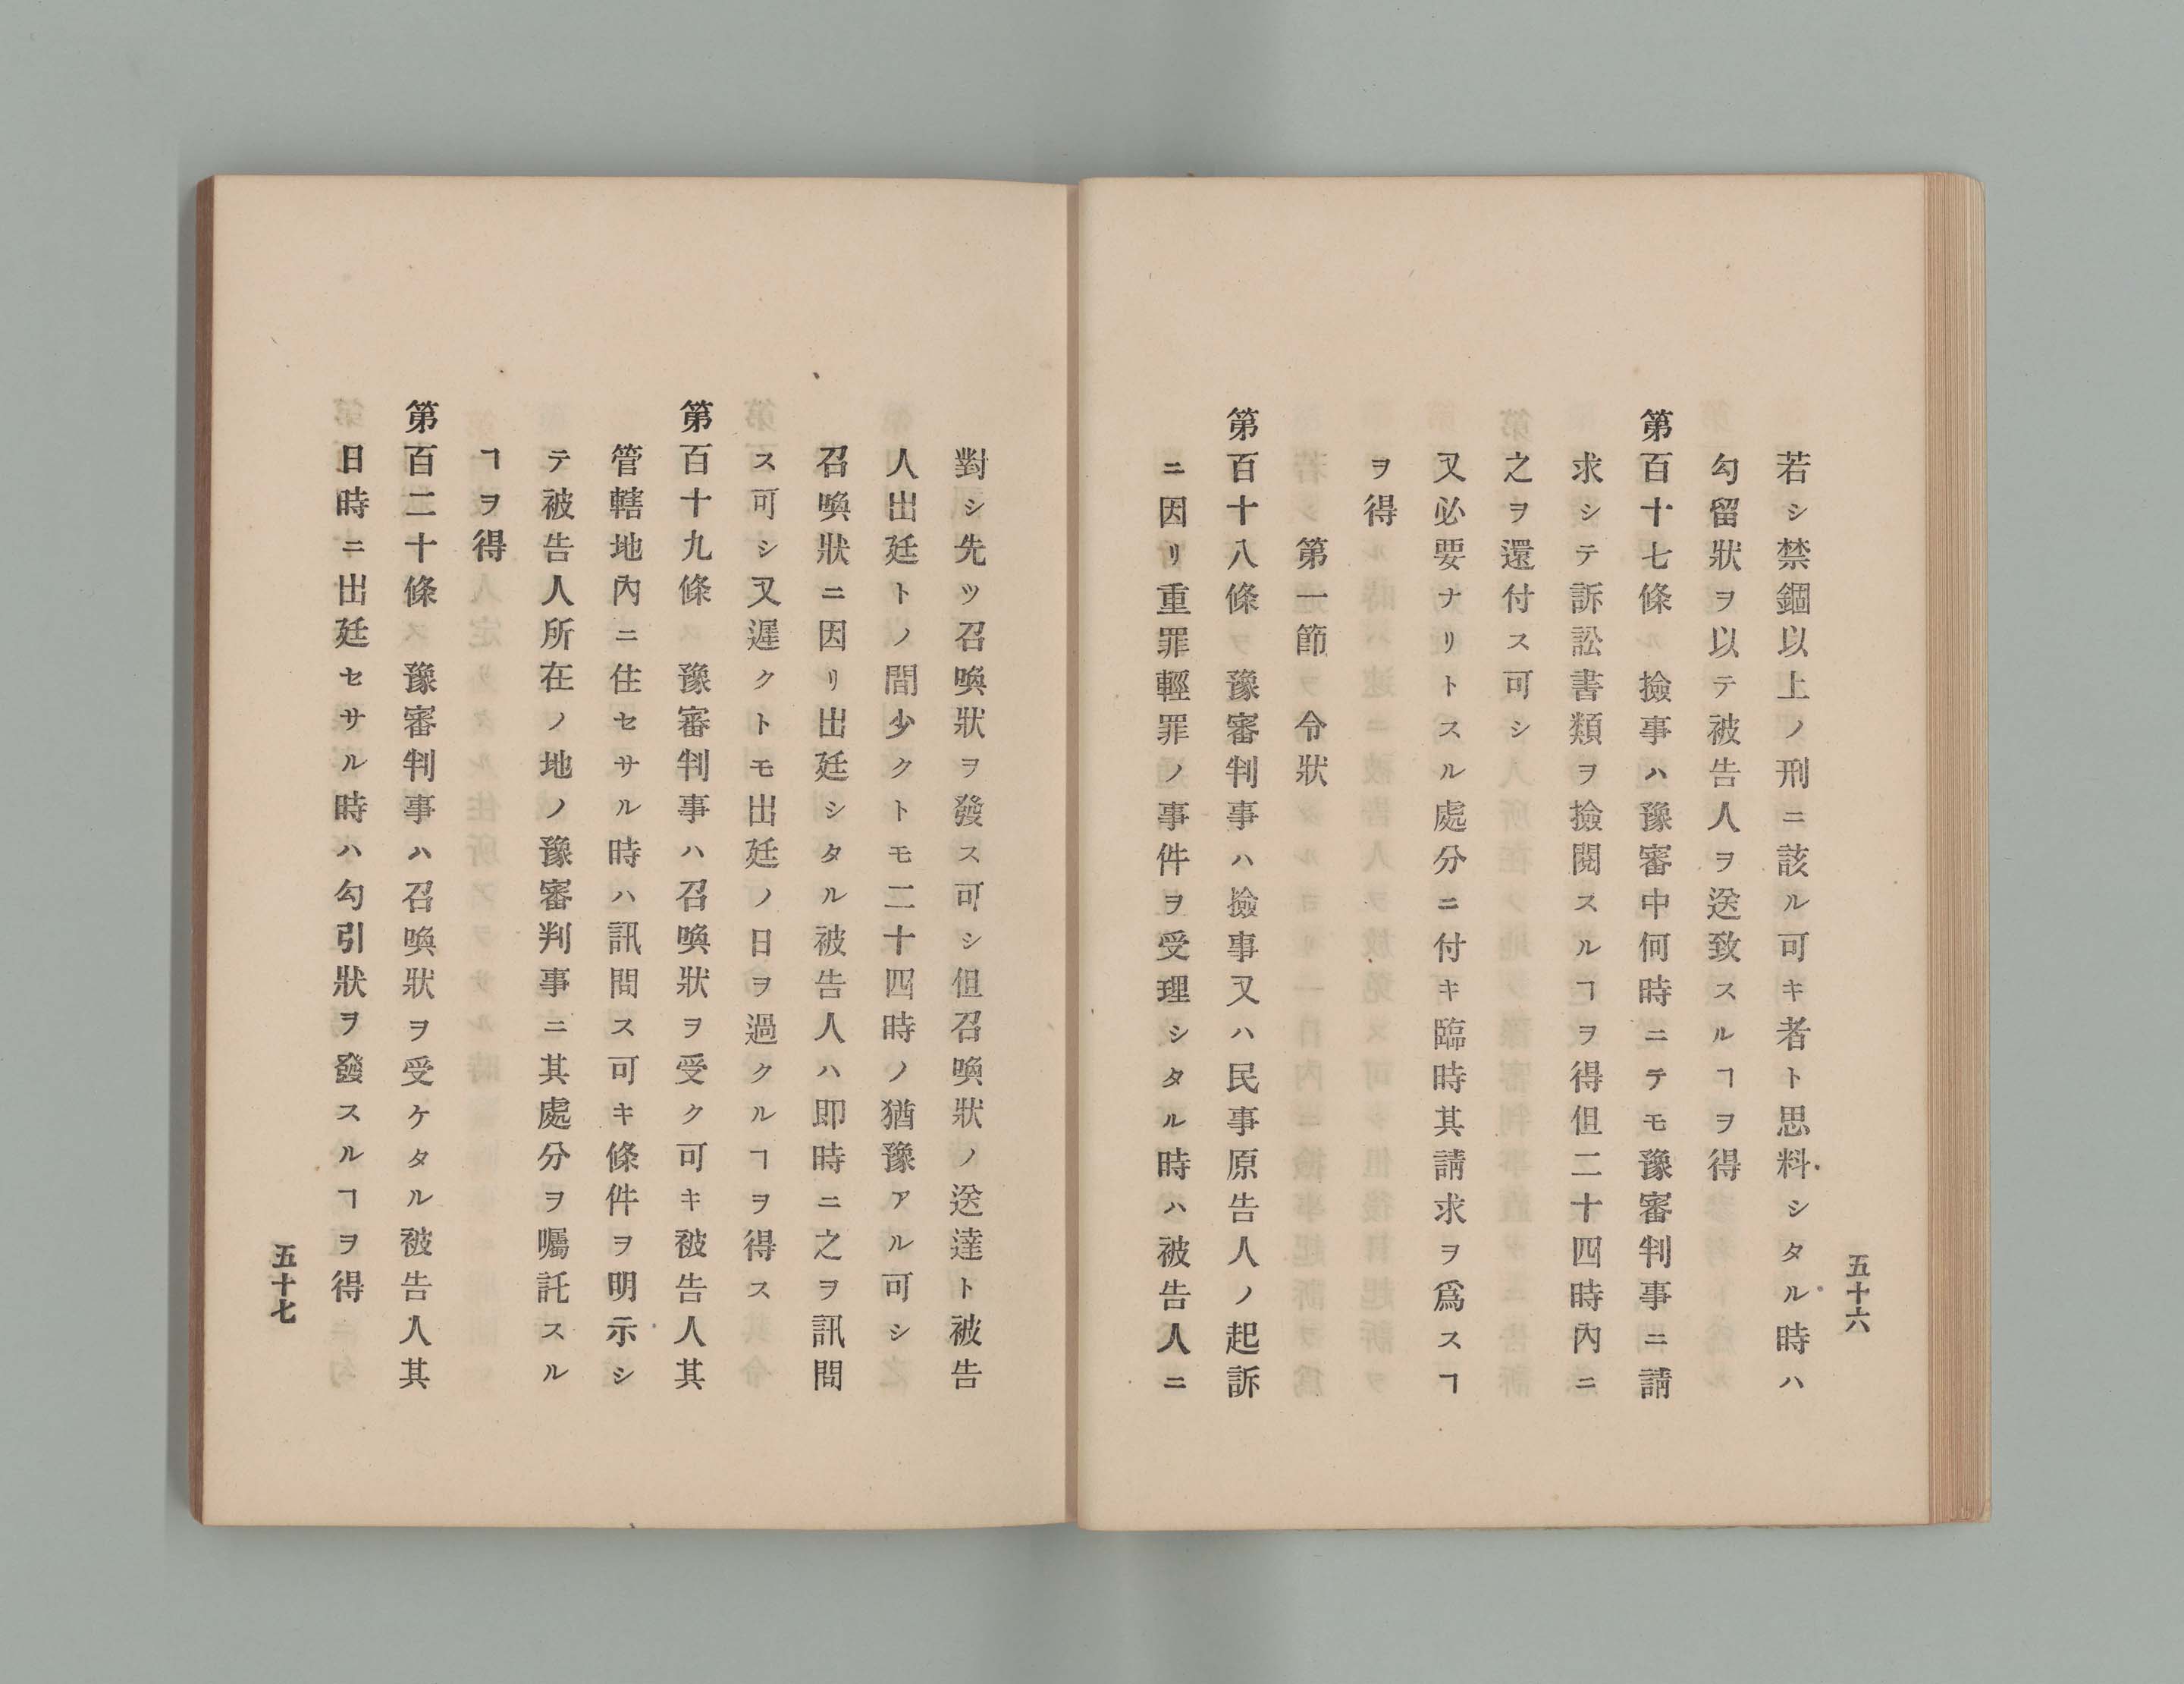 五十六
若シ禁錮以上ノ刑ニ該ル可キ者ト思料シタル時ハ
勾留狀ヲ以テ被告人ヲ送致スルヿヲ得
第百十七條　撿事ハ豫審中何時ニテモ豫審判事ニ請
求シテ訴訟書類ヲ撿閱スルヿヲ得但二十四時內ニ
之ヲ還付ス可シ
又必要ナリトスル處分ニ付キ臨時其請求ヲ爲スヿ
ヲ得
第一節　令狀
第百十八條　豫審判事ハ撿事又ハ民事原告人ノ起訴
ニ因リ重罪輕罪ノ事件ヲ受理シタル時ハ被告人ニ
對シ先ツ召喚狀ヲ發ス可シ但召喚狀ノ送達ト被告
人出廷トノ間少クトモ二十四時ノ猶豫アル可シ
召喚狀ニ因リ出廷シタル被告人ハ即時ニ之ヲ訊問
ス可シ又遲クトモ出廷ノ日ヲ過クルヿヲ得ス
第百十九條　豫審判事ハ召喚狀ヲ受ク可キ被告人其
管轄地內ニ住セサル時ハ訊問ス可キ條件ヲ明示シ
テ被告人所在ノ地ノ豫審判事ニ其處分ヲ囑託スル
ヿヲ得
第百二十條　豫審判事ハ召喚狀ヲ受ケタル被告人其
日時ニ出廷セサル時ハ勾引狀ヲ發スルヿヲ得
五十七